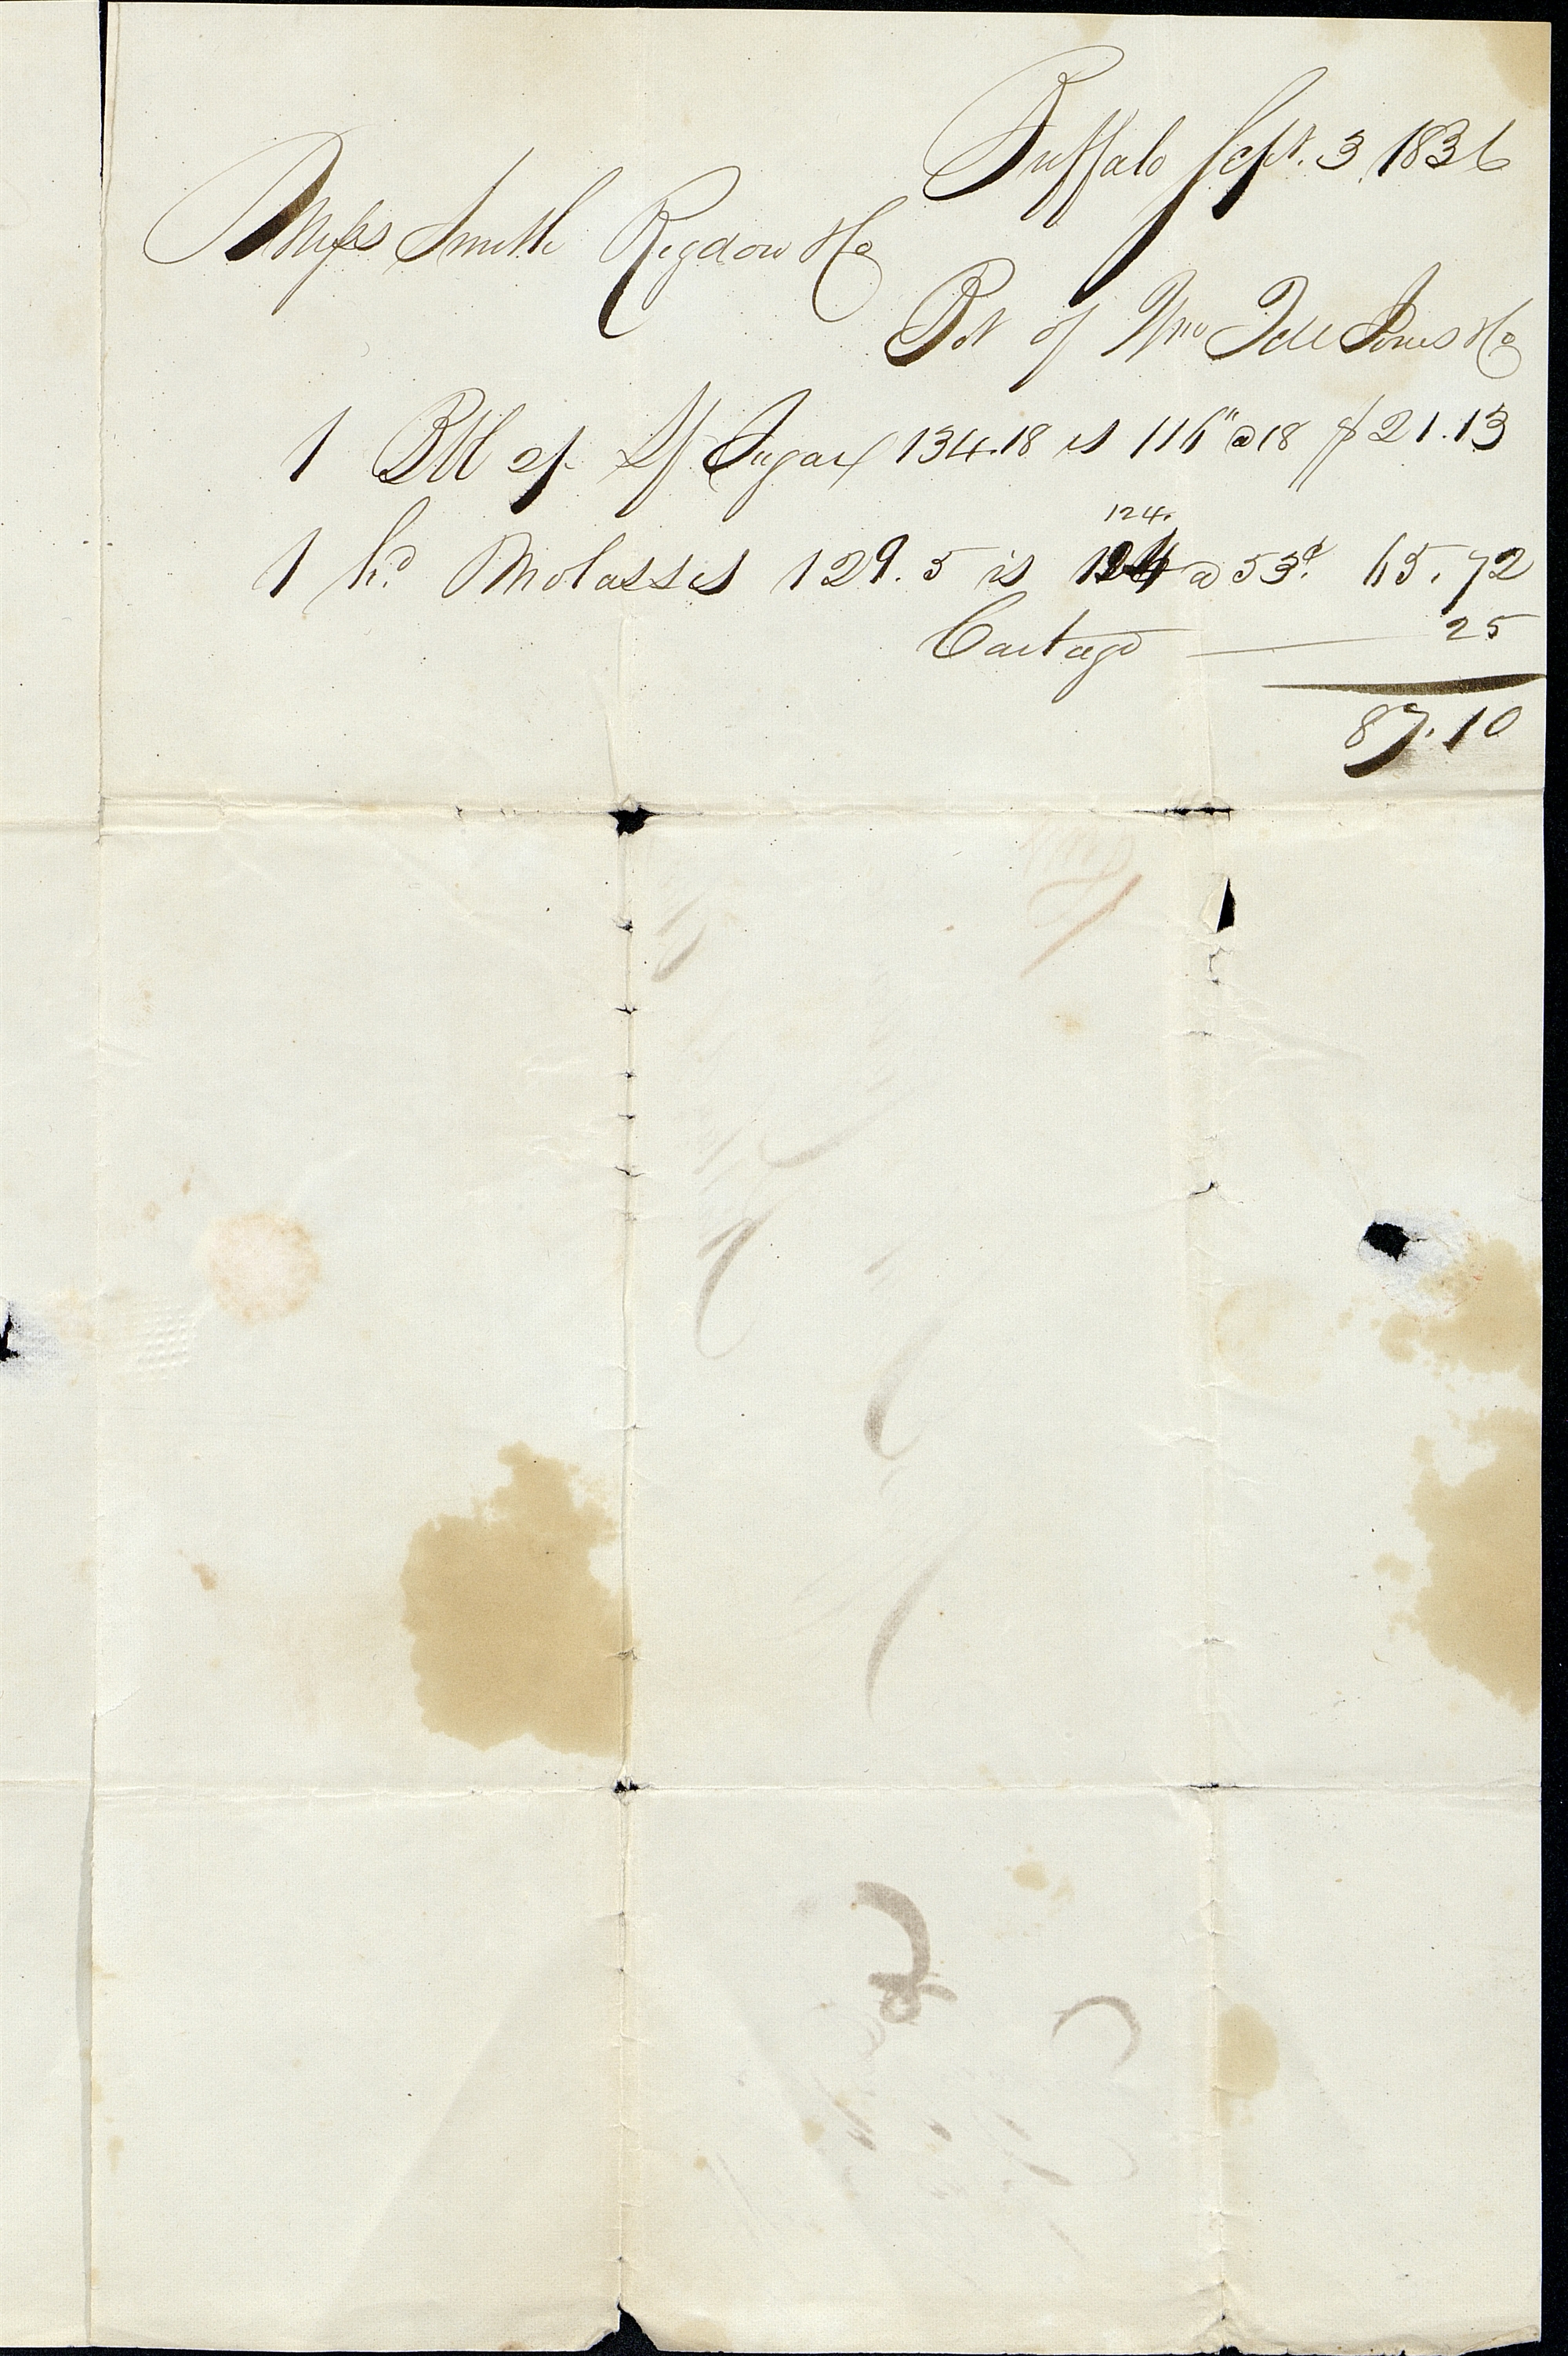 Buffalo Sept. 3 1836
Mess Smith Rigdon & Co
Bot of Wm Tell Jones & Co
1 Bbl of Lf Sugar 134.18 is 116" @ 18 $21.13
124.
1 hd Molasses 129.5 is 124 @ 53c. 65.72
Cartage 25
87.10